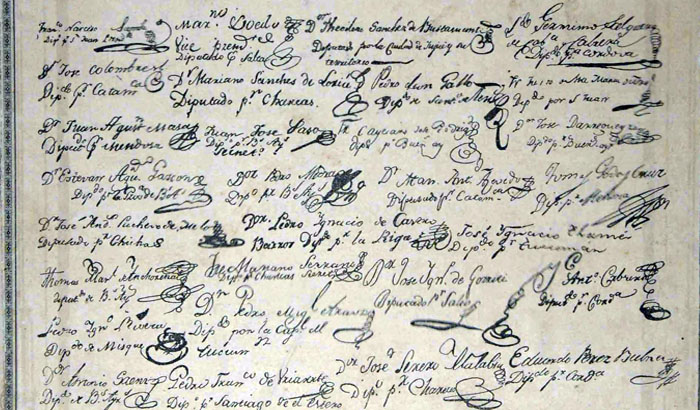 Fran.co Narciso
Dip.o p.r San Juan
Mar.no Boedo
Vice presid.te
Diputado p.r Salta
D.r Theodoro Sanchez de Bustamante
Diputado por la Ciudad de Jujuy y su
territorio
Geronimo Salguero
de Cabrera
Dip.do p.r Cordova
Jose Colombres
Dip.do p.r Catam.ca
D.r Mariano Sanchez de Loria
Diputado p.r Charcas
Pedro Leon Gallo
Dip.do de Sant.o
Dip.do por S.n Juan
D.r Juan Agust.n Maza
Diput.do p.r Mendoza
Juan Jose Paso
Dip.do p.r B.s Ay.s
Secret.o
Fr. Cayetano Jose Rodrig.z
Dip.do p.r Buen.s Ay.s
D.or Jose Darregueyra
Dip.do p.r Buen.s Ay.s
D.r Estevan Ag.n Gascon
Dip.do p.r B.s Ay.s
D.r Man. Ant. Acevedo
Diputado p.r Catam.
Tomas Godoy Cruz
Dip.do p.r Mendoza
D.r José And.s Pacheco de Melo
Diputado p.r Chichas
D.or Pedro Ignacio de Castro
Barros Dip.do p.r la Rioja
José Ignacio Thames
Dip.do p.r Tucuman
Thomas Man.l de Anchorena
diput.do de B.s Ay.s
Jose Mariano Serrano
Dip.do p.r Charcas Secret.o
D.or Jose Ign.o de Gorriti
Diputado p.r Salta
J. E.
Ant.o Cabrera
Diput.do p.r Cord.a
Pedro Ign.o Rivera
Dip.do de Mizque
D.r Pedro Mig.l Araoz
Dip.do por la Cap.l
Tucuman
D.or Jose Severo Malabia
Dip.do p.r Charcas
Eduardo Perez Bulnes
Dip.do p.r Cord.a
D.r Antonio Saenz
Dip.do de B.s Ay.s
Pedro Fran.co de Uriarte
Dip.do p.r Santiago de el Estero